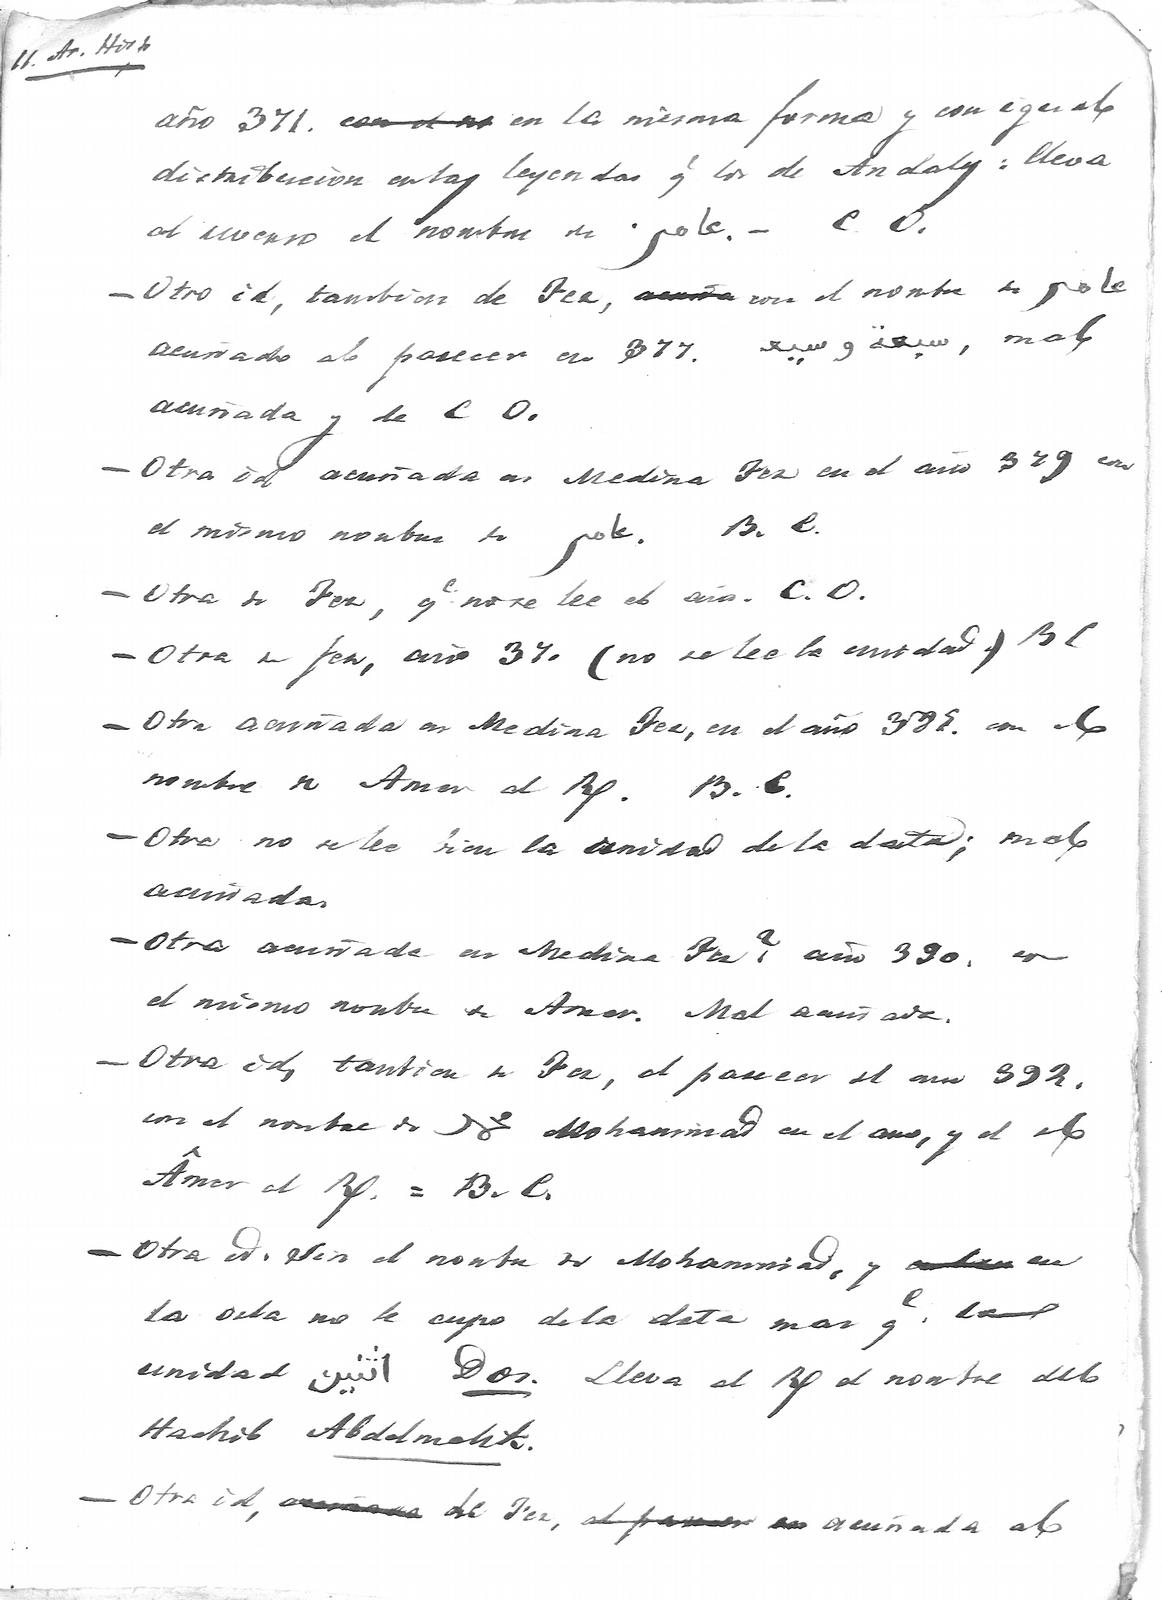 11. Ar. Hisp
año 371. con el no en la misma forma y con igual
distribucion en las leyendas q.e los de Andalus: lleva
al reverso el nombre de عامر. - C O.
- Otro id, tambien de Fez, acuña con el nombre de عامر
acuñado al parecer en 377. سبعة و سبع, mal
acuñada y de C O.
- Otra id acuñada en Medina Fez en el año 379 con
el mismo nombre de عامر. B. C.
- Otra de Fez, q.e no se lee el año. C. O.
- Otra de Fez, año 37. (no se lee la unidad.) B C
- Otra acuñada en Medina Fez, en el año con el
nombre de Amer al R/. B. C.
- Otra no se lee bien la unidad de la data; mal
acuñada.
- Otra acuñada en Medina Fez? año 390. con
el mismo nombre de Amer. Mal acuñada.
- Otra id, tambien de Fez, al parecer el año 392.
con el nombre de محمد Mohammad en el anv, y el de
Âmer al R/. = B. C.
- Otra id. Sin el nombre de Mohammad, y en
la orla no le cupo de la data mas q.e la
unidad اثنين Dos. Lleva al R/ el nombre del
Hachib Abdelmelik.
- Otra id, acuñada de Fez, al parecer en acuñada al